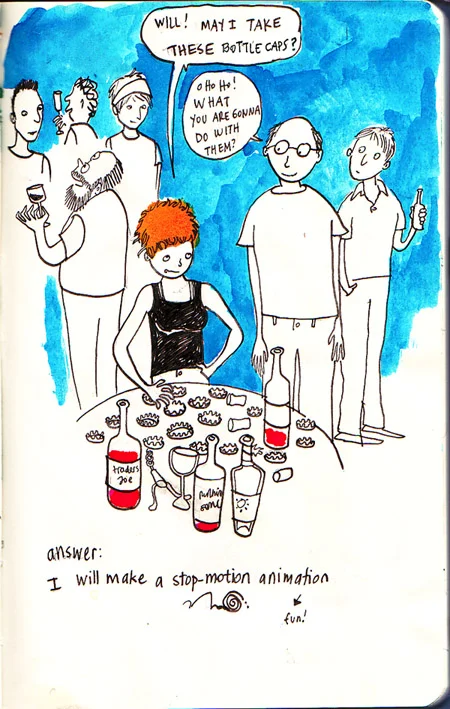 WILL! MAY I TAKE
THESE BOTTLE CAPS?
OHOHO!
WHAT
YOU ARE GONNA
DO WITH
THEM?
traders
Joe
answer:
I will make a stop-motion animation
fun!